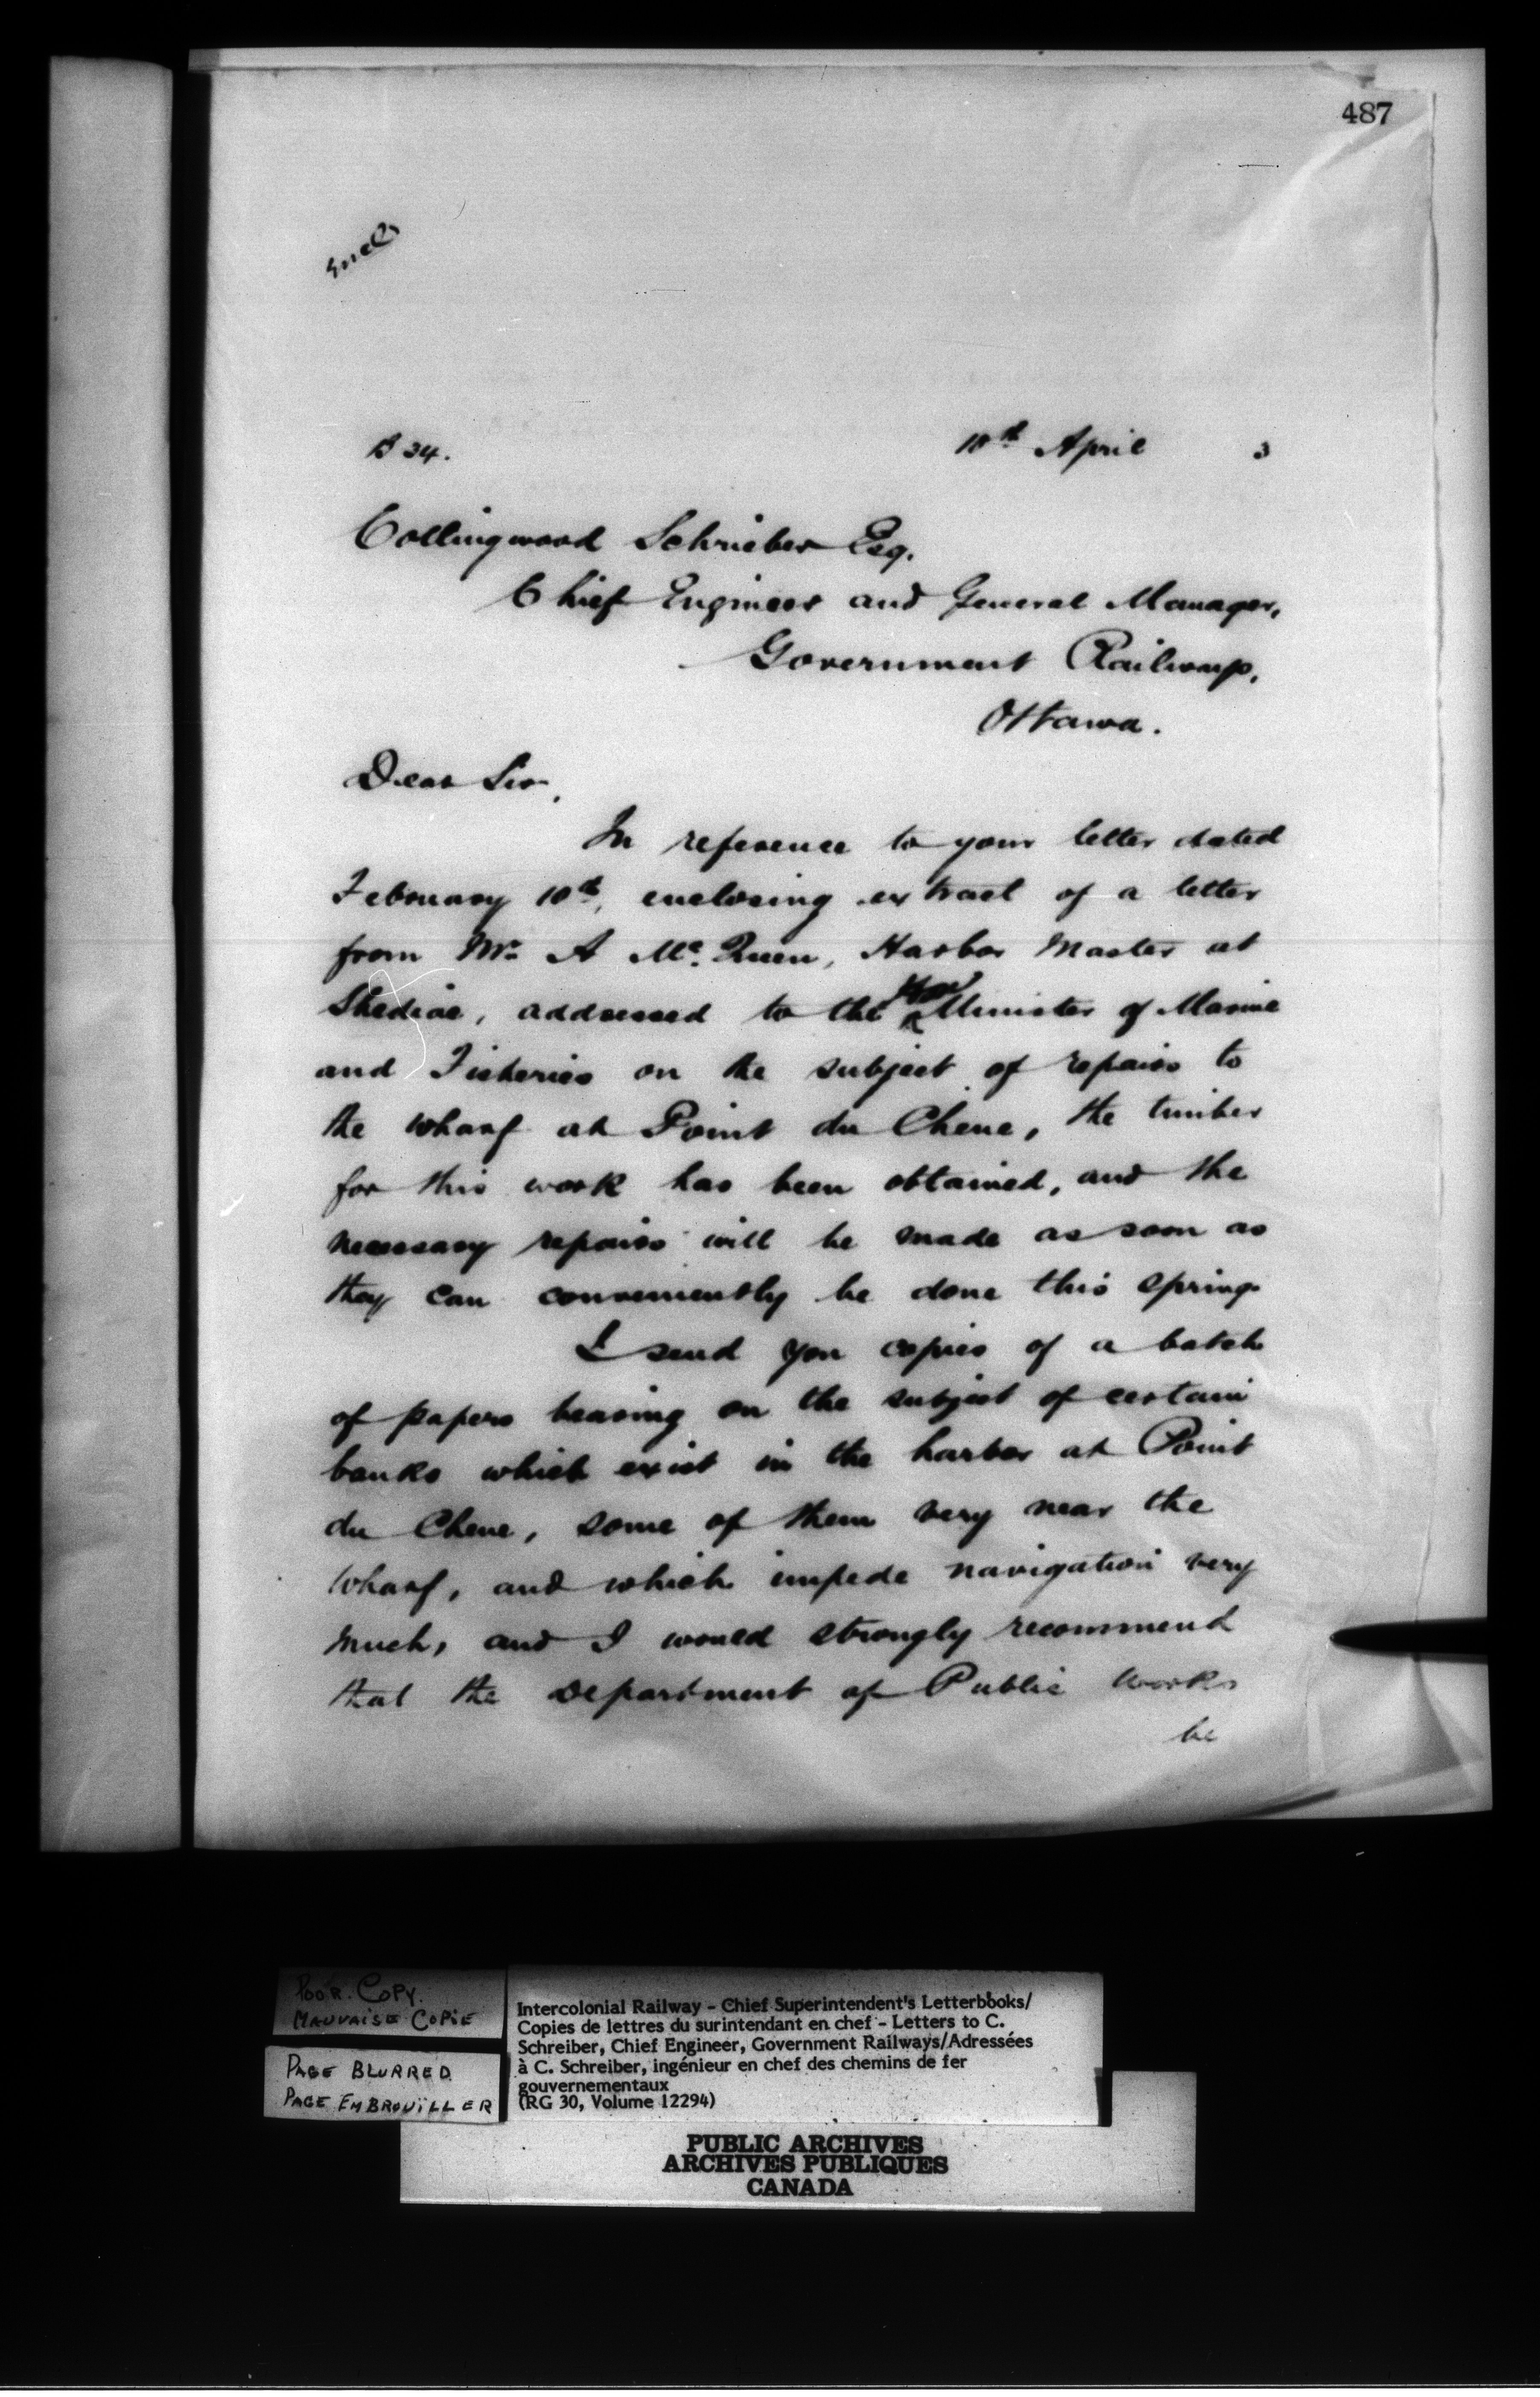 487
Encls
B 34.
10th April 3
Collingwood Schrieber Esq.
Chief Engineer and General Manager,
Government Railways,
Ottawa.
Dear Sir,
In reference to your letter dated
February 10th, enclosing extract of a letter
from Mr. A Mc. Queen, Harbor Master at
Shediac, addressed to the Hon Minister of Marine
and Fisheries on the subject of repairs to
the wharf at Point du Chene, the timber
for this work has been obtained, and the
necessary repairs will be made as soon as
they can conveniently be done this spring.
I send you copies of a batch
of papers bearing on the subject of certain
banks which exist in the harbor at Point
du Chene, some of them very near the
wharf, and which impede navigation very
much, and I would strongly recommend
that the Department of Public Works
be
POOR COPY.
MAUVAISE COPIE
PAGE BLURRED
PAGE EMBROUILLER
Intercolonial Railway - Chief Superintendent's Letterbooks/
Copies de lettres du surintendant en chef - Letters to C.
Schreiber, Chief Engineer, Government Railways/Adressées
à C. Schreiber, ingénieur en chef des chemins de fer
gouvernementaux
(RG 30, Volume 12294)
PUBLIC ARCHIVES
ARCHIVES PUBLIQUES
CANADA